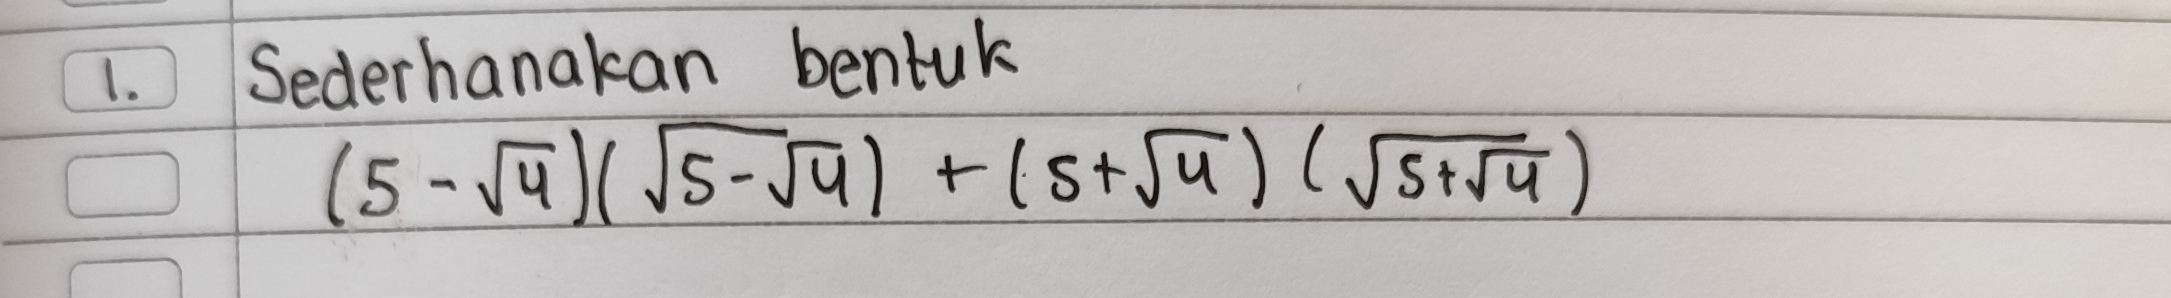 1. Sederhanakan bentuk
(5 - √4)(√5-√4) + (5+√4) (√5+√4)